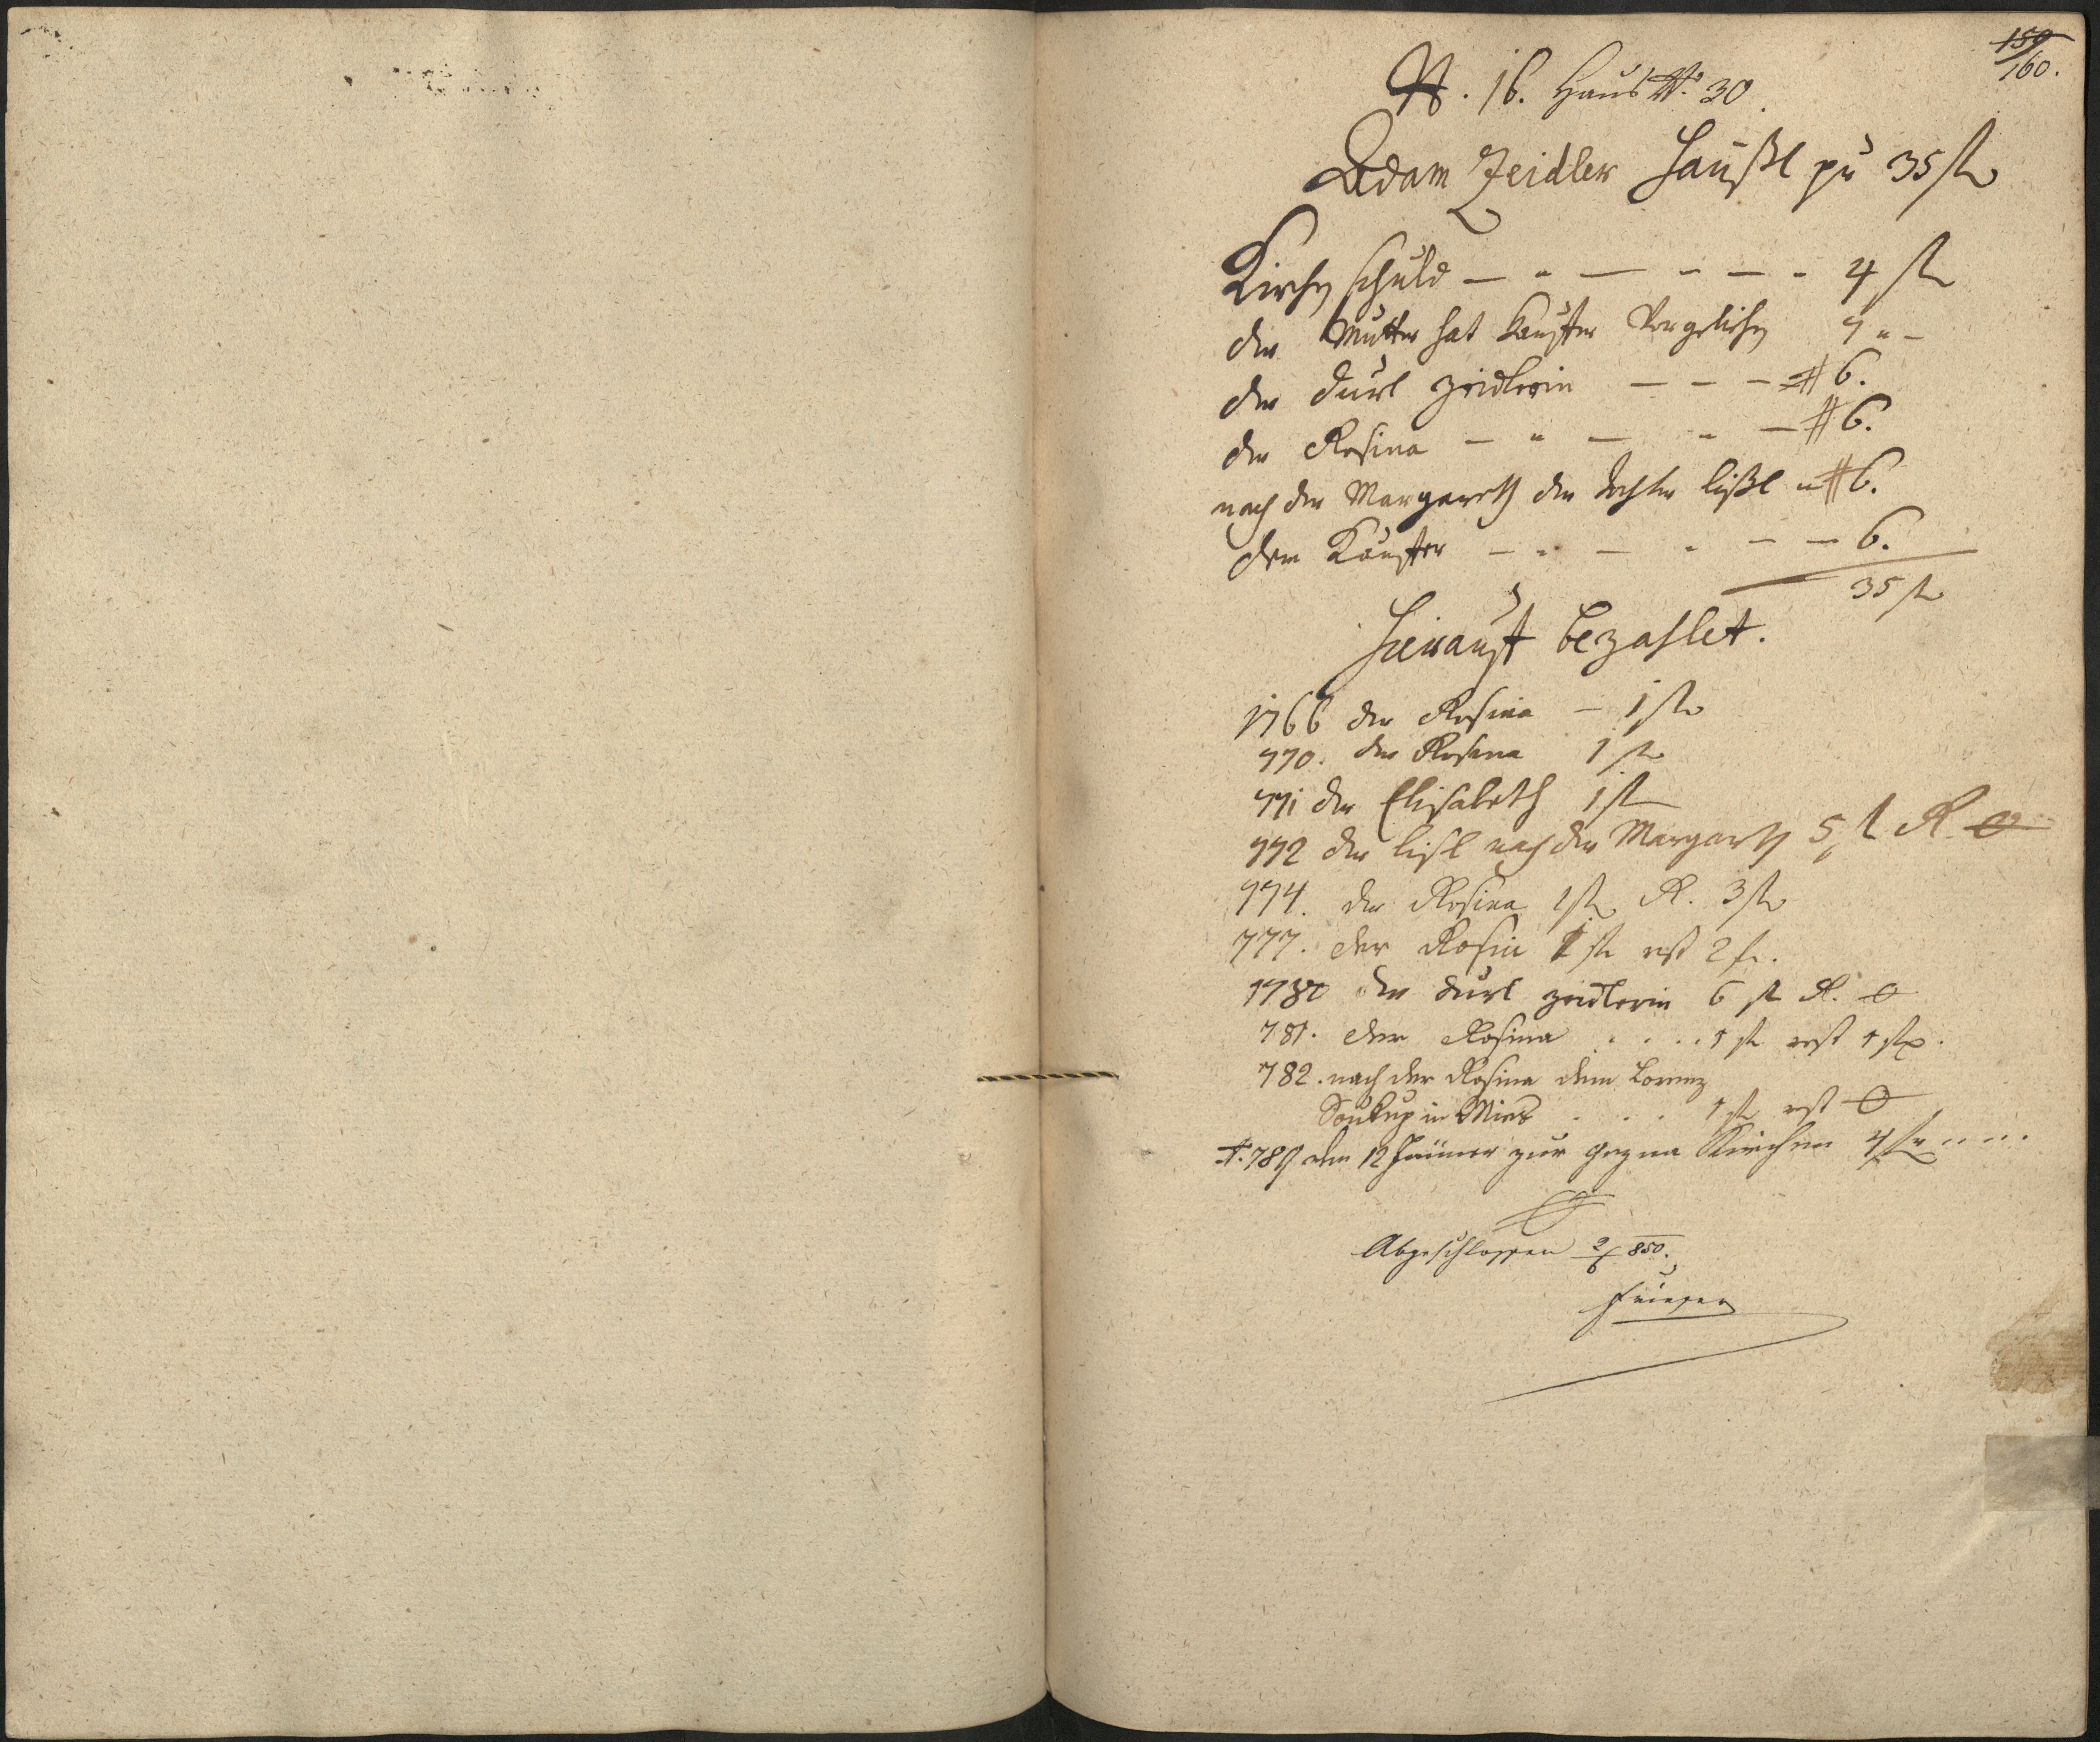 159
160.
N. 16. Haus No. 30
Adam Zeidler Häußl pr 35 fl
Kirchen schuld — " — " — " 4 fl
der Mutter hat Kauffer Vergliechen 7 " —
der Durl Zeidlerin — — — # 6.
der Rosina — " — " — # 6.
nach der Margareth der dochter Lißl " # 6.
dem Kauffer — " — " — — 6.
35 fl
Hierauf bezahlet.
1766 der Rosina — 1 fl
770. der Rosina 1 fl
771 der Elisabeth 1 fl
772 der Lisl nach der Margareth 5 fl R 0
774. der Rosina 1 fl R. 3 fl
777. der Rosin 1 fl rest 2 fl.
1780 der Durl Zeidlerin 6 fl R. 0
781. der Rosina . . . . 1 fl rest 1 fl.
782. nach der Rosina dem Lorenz
Soukup in Mies . . . 1 fl rest 0
A. 789 den 12 Jänner zur Kirchen 4 fl . . . .
Abgeschlossen 2/6 850.